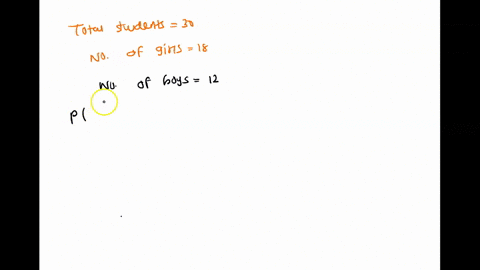 Total students = 30
No. of girls = 18
No. of boys = 12
P(